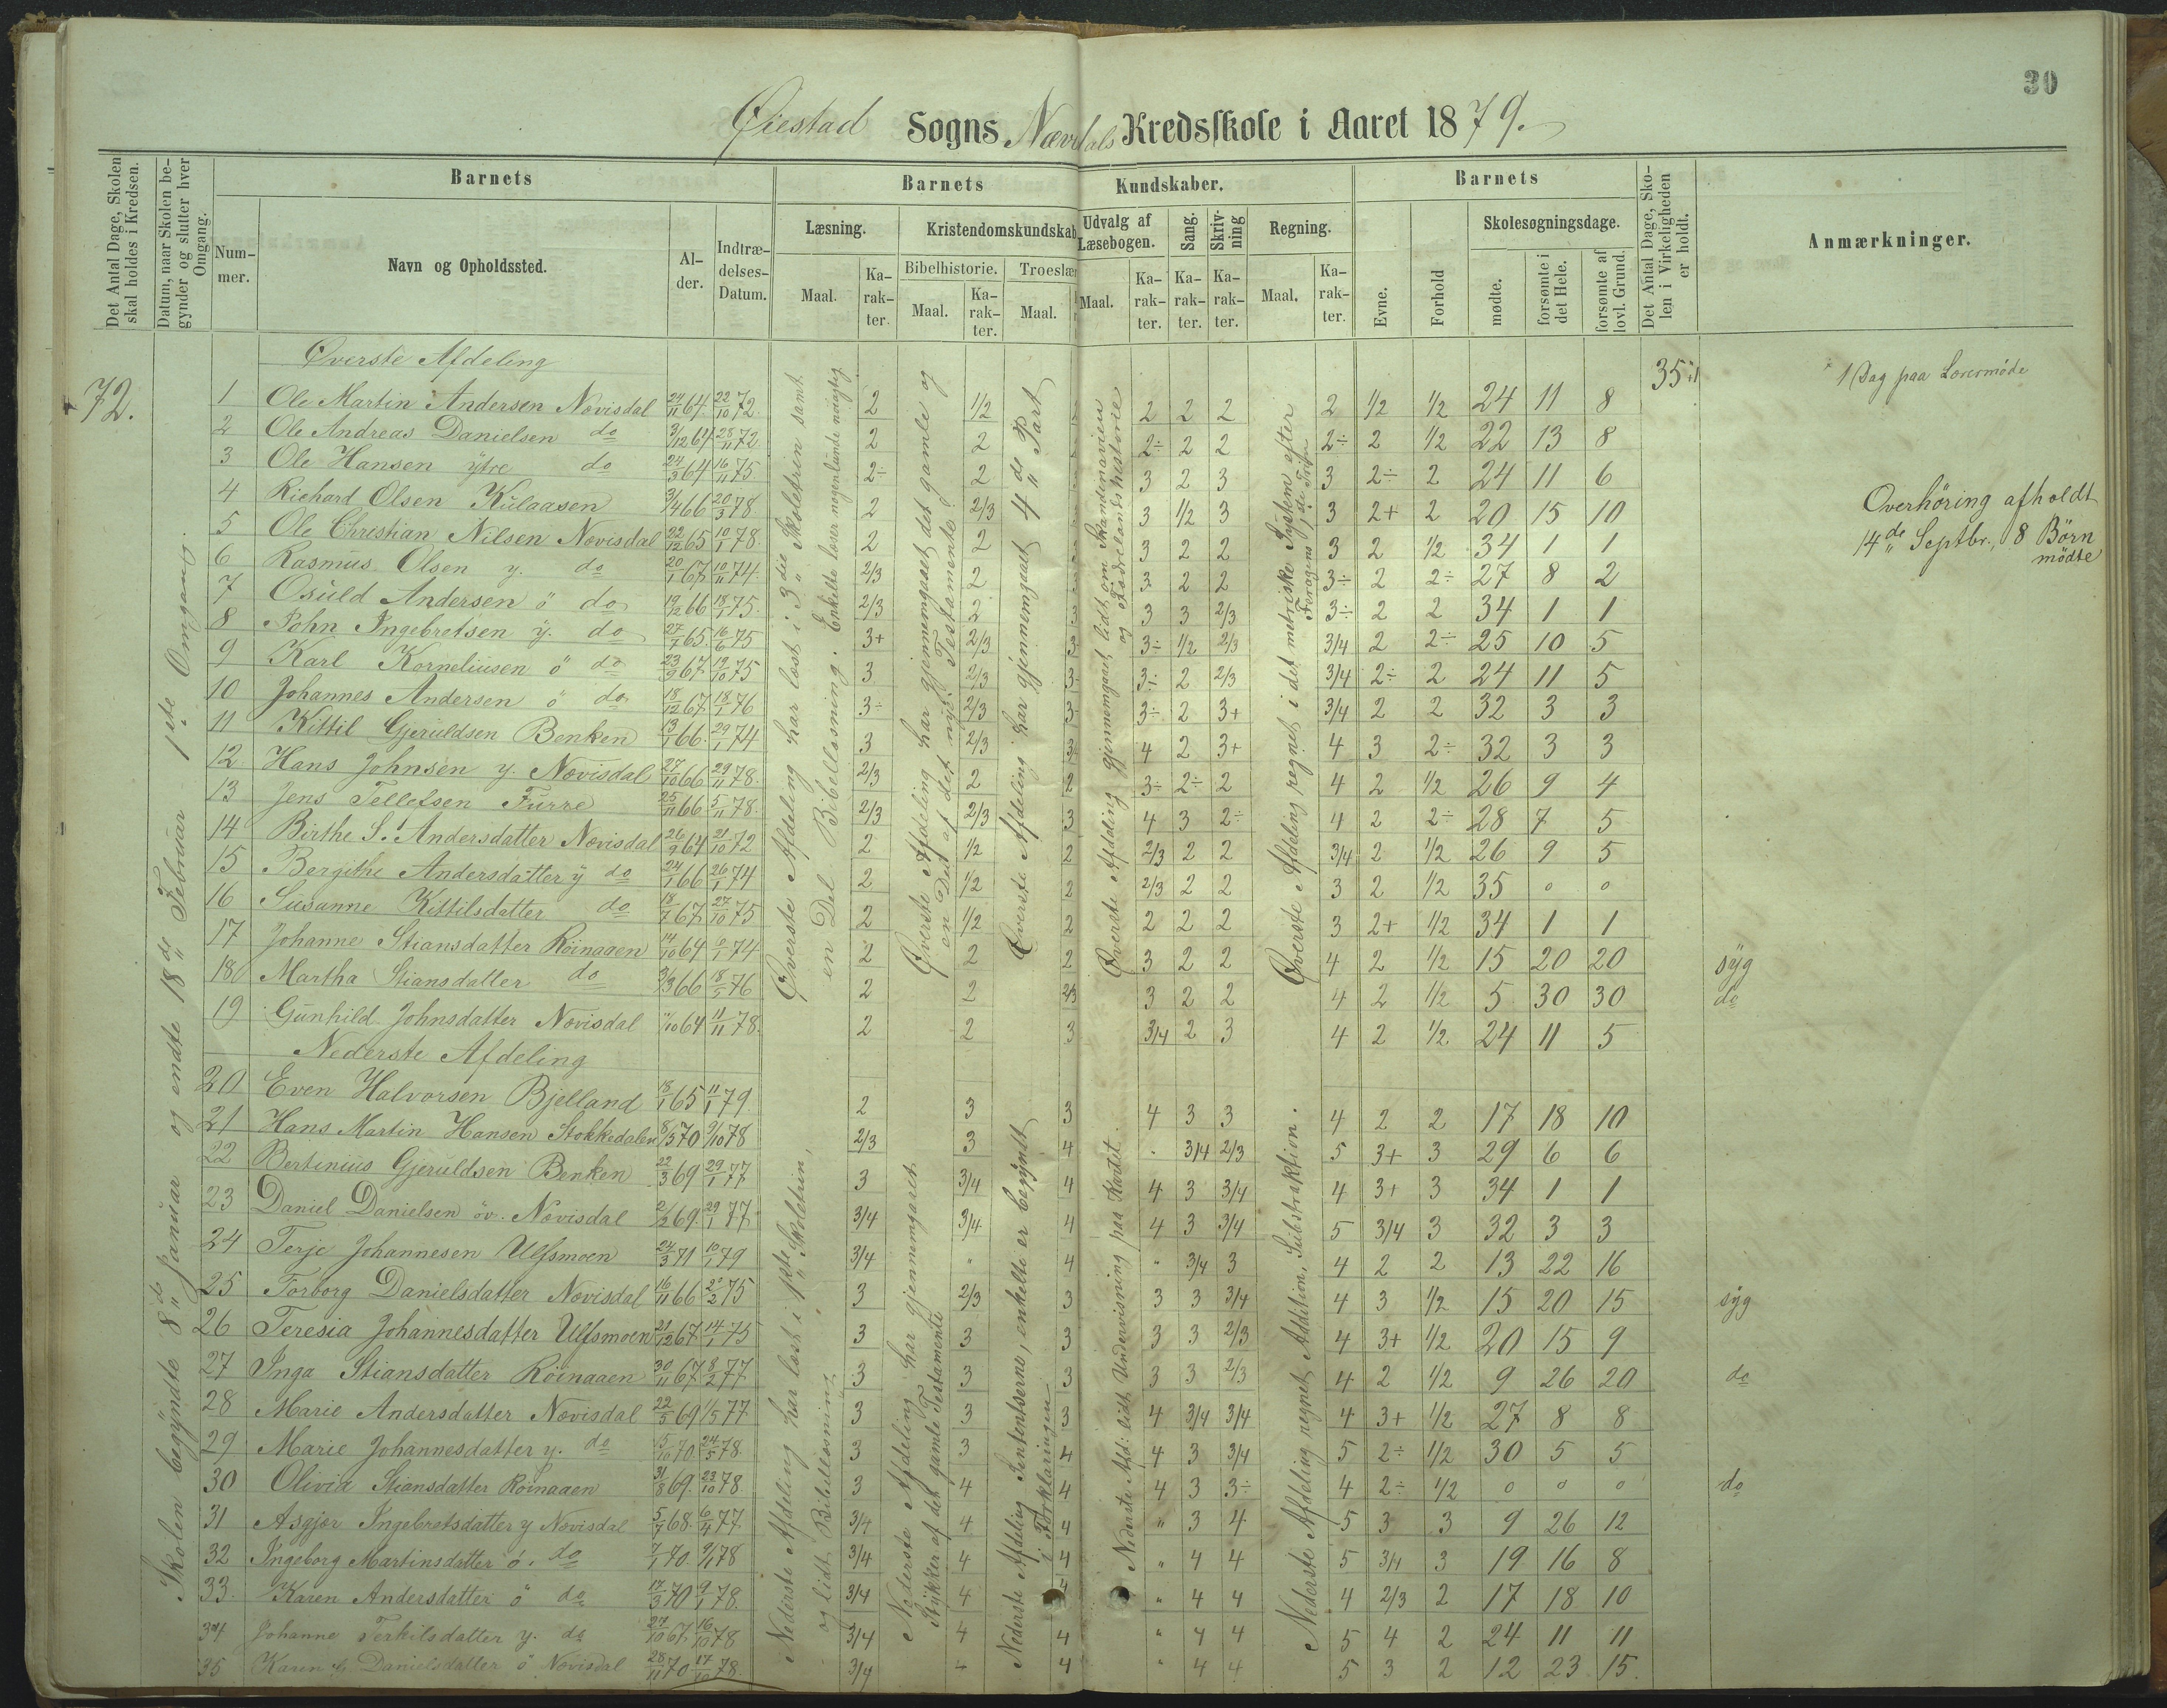 30
Øiestad Sogns Nævdals Kredsskole i Aaret 1879.
Det Antal Dage, Skolen skal holdes i Kredsen.
Datum, naar Skolen begynder og slutter hver Omgang.
Barnets
Nummer.
Navn og Opholdssted.
Alder.
Indtrædelses-Datum.
Barnets Kundskaber.
Læsning.
Maal.
Karakter.
Kristendomskundskab
Bibelhistorie.
Maal.
Karakter.
Troeslær
Maal.
Udvalg af Læsebogen.
Maal.
Karakter.
Sang.
Karakter.
Skrivning
Karakter.
Regning.
Maal.
Karakter.
Barnets
Evne.
Forhold
Skolesøgningsdage.
mødte.
forsømte i det Hele.
forsømte af lovl. Grund.
Det Antal Dage, Skolen i Virkeligheden er holdt.
Anmærkninger.
72.
Skolen begyndte 8de Januar og endte 18de Februar 1ste Omgang.
35+1
1 Dag paa Lærermøde
Overhöring afholdt
14de Septbr., 8 Børn
mødte
Øverste Afdeling har læst i 3die Skoletrin samt
en Del Bibellæsning. Enkelte læser nogenlunde nøiagtig
Øverste Afdeling har gjennemgaaet det gamle og
en Del af det nye Testamente.
Øverste Afdeling har gjennemgaaet 4de Part
Øverste Afdeling gjennemgaaet lidt om Skandinavien
og Fædrelandshistorie
Øverste Afdeling regnet i det metriske System efter
Øverste Afdeling
1 Ole Martin Andersen Nævisdal 24/11 64. 22/10 72. 2 1/2 2 2 2 2 1/2 1/2 24 11 8
2 Ole Andreas Danielsen do 3/12 64 28/11 72 2 2 2÷ 2 2 2÷ 2 1/2 22 13 8
3 Ole Hansen ytre do 24/3 64 16/11 75 2÷ 2 3 2 3 3 2÷ 2 24 11 6
4 Richard Olsen Kulaasen 3/4 66 20/3 78 2 2/3 3 1/2 3 3 2+ 2 20 15 10
5 Ole Christian Nilsen Nævisdal 22/12 65 10/1 78. 2 2 3 2 2 3 2 1/2 34 1 1
6 Rasmus Olsen y. do 20/1 67 10/11 74. 2/3 2 3 2 2 3÷ 2 2÷ 27 8 2
7 Osuld Andersen ö do 19/12 66 18/1 75. 2/3 2 3 3 2/3 3÷ 2 2 34 1 1
8 John Ingebretsen y. do 27/7 65. 16/6 75 3+ 2/3 3÷ 1/2 2/3 3/4 2 2÷ 25 10 5
9 Karl Korneliusen ö do 23/9 67 19/10 75 3 2/3 3÷ 2 2/3 3/4 2÷ 2 24 11 5
10 Johannes Andersen ö do 18/12 67 18/1 76 3÷ 2/3 3÷ 2 3+ 3/4 2 2 32 3 3
11 Kittil Gjeruldsen Benken 13/1 66. 29/1 74 3 2/3 4 2 3+ 4 3 2÷ 32 3 3
12 Hans Johnsen y. Nævisdal 27/10 66 29/11 78. 2/3 2 2 3÷ 2÷ 2 4 2 1/2 26 9 4
13 Jens Tellefsen Furre 25/11 66 5/11 78. 2/3 2/3 3 4 3 2÷ 4 2 2÷ 28 7 5
14 Birthe S. Andersdatter Nævisdal 26/9 64 21/10 72 2 1/2 2 2/3 2 2 3/4 2 1/2 26 9 5
15 Bergithe Andersdatter y do 24/1 66 26/1 74 2 1/2 2 2/3 2 2 3 2 1/2 35 0 0
16 Susanne Kittilsdatter do 18/7 67. 27/10 75 2 1/2 2 2 2 2 3 2+ 1/2 34 1 1
17 Johanne Stiansdatter Röinaaen 14/10 64 6/1 74. 2 2 2 3 2 2 4 2 1/2 15 20 20 syg
18 Martha Stiansdatter do 3/3 66 18/5 76 2 2 2/3 3 2 2 4 2 1/2 5 30 30 do
19 Gunhild Johnsdatter Nævisdal 11/10 64 11/11 78. 2 2 3 3/4 2 3 4 2 1/2 24 11 5
Nederste Afdeling
Nederste Afdeling har læst i 1ste Skoletrin,
og lidt Bibellæsning
Nederste Afdeling har gjennemgaaet
Stykker af det gamle Testamente
Nederste Afdeling Sententserne, enkelte er begyndt
i Forklaringen
Nederste Afd: lidt Undervisning paa Kartet.
Nederste Afdeling regnet Addition, Substraktion.
20 Even Halvorsen Bjelland 18/1 65 11/1 79. 2 3 3 4 3 3 4 2 2 17 18 10
21 Hans Martin Hansen Stokkedalen 8/5 70 9/10 78 2/3 3 4 3/4 2/3 5 3+ 3 29 6 6
22 Bertinius Gjeruldsen Benken 22/3 69 29/1 77 3 3/4 4 4 3 3/4 4 3+ 3 34 1 1
23 Daniel Danielsen öv. Nævisdal 2/2 69. 29/1 77 3/4 3/4 4 4 3 3/4 5 3/4 3 32 3 3
24 Terje Johannesen Ulfsmoen 24/3 71 10/1 79 3/4 " 4 " 3/4 3 4 2 2 13 22 16
25 Torborg Danielsdatter Nævisdal 16/11 66 2/2 75 3 2/3 3 3 3 3/4 4 3 1/2 15 20 15 syg
26 Teresia Johannesdatter Ulfsmoen 21/12 67 14/1 75 3 3 3 3 3 2/3 4 3+ 1/2 20 15 9
27 Inga Stiansdatter Röinaaen 30/11 67 8/2 77 3 3 3 3 3 2/3 4 2 1/2 9 26 20 do
28 Marie Andersdatter Nævisdal 22/5 69 1/5 77 3 3 3 4 3/4 3/4 4 3+ 1/2 27 8 8
29 Marie Johannesdatter y. do 15/10 70 24/5 78. 3 3 4 4 3 3/4 5 2÷ 1/2 30 5 5
30 Olivia Stiansdatter Roinaaen 31/8 69. 23/10 78. 3 4 4 4 3 3÷ 4 2÷ 1/2 0 0 0 do
31 Asgjer Ingebretsdatter y Nævisdal 5/7 68. 6/4 77. 3/4 4 4 " 3 4 5 3 3 9 26 12
32 Ingeborg Martinsdatter ö. do 7/1 70. 9/1 78 3/4 4 4 " 4 4 5 3/4 3 19 16 8
33. Karen Andersdatter ö do 17/3 70 9/1 78. 3/4 4 4 " 4 4 4 2/3 2 17 18 10
34 Johanne Terkilsdatter y. do 27/10 67 16/10 78 3/4 4 4 " 4 4 5 4 2 24 11 11
35 Karen Danielsdatter ö Nævisdal 28/11 70 17/10 78. 3/4 4 4 " 4 4 5 3 2 12 23 15.